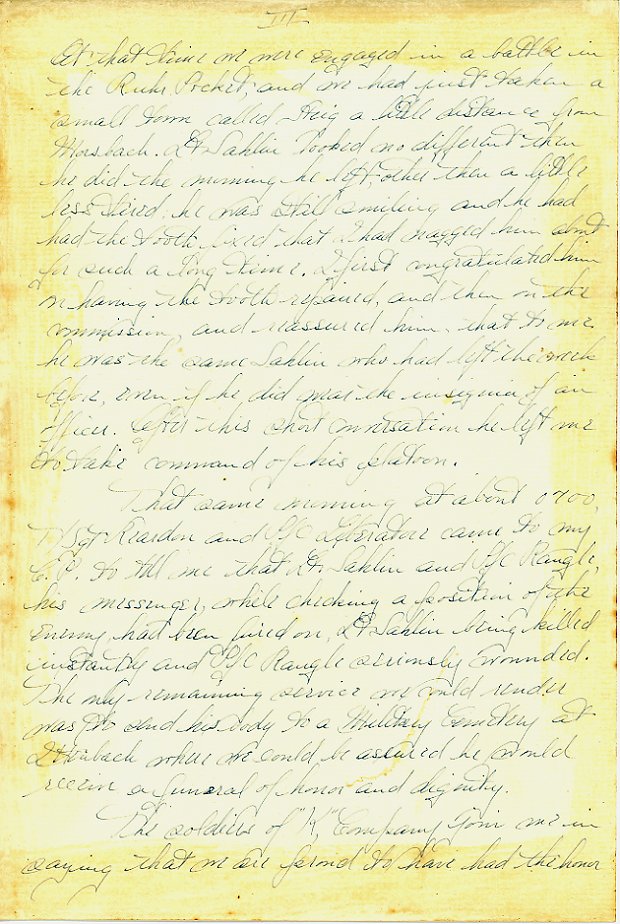 III
At that time we were engaged in a battle in
the Ruhr Pocket, and we had just taken a
small town called a little distance from
Morsbach. Lt Sahlin looked no different then
he did the morning he left, other then a little
less tired, he was still smiling and he had
had the tooth fixed that I had nagged him about
for such a long time. I first congratulated him
on having the tooth repaired, and then on the
commission, and reassured him, that to me
he was the same Sahlin who had left the week
before, even if he did wear the insignia of an
officer. After this short conversation he left me
to take command of his platoon.
That same morning at about 0700,
T/Sgt Reardon and Pfc Liberatore came to my
C.P. to tell me that Lt. Sahlin and Pfc Rangle,
his messenger, while checking a position of the
enemy, had been fired on, Lt Sahlin being killed
instantly and Pfc Rangle seriously wounded.
The only remaining service we could render
was to send his body to a Military Cemetery at
Ittenbach where we could be assured he would
receive a funeral of honor and dignity.
The soldiers of "K" Company join me in
saying that we are proud to have had the honor